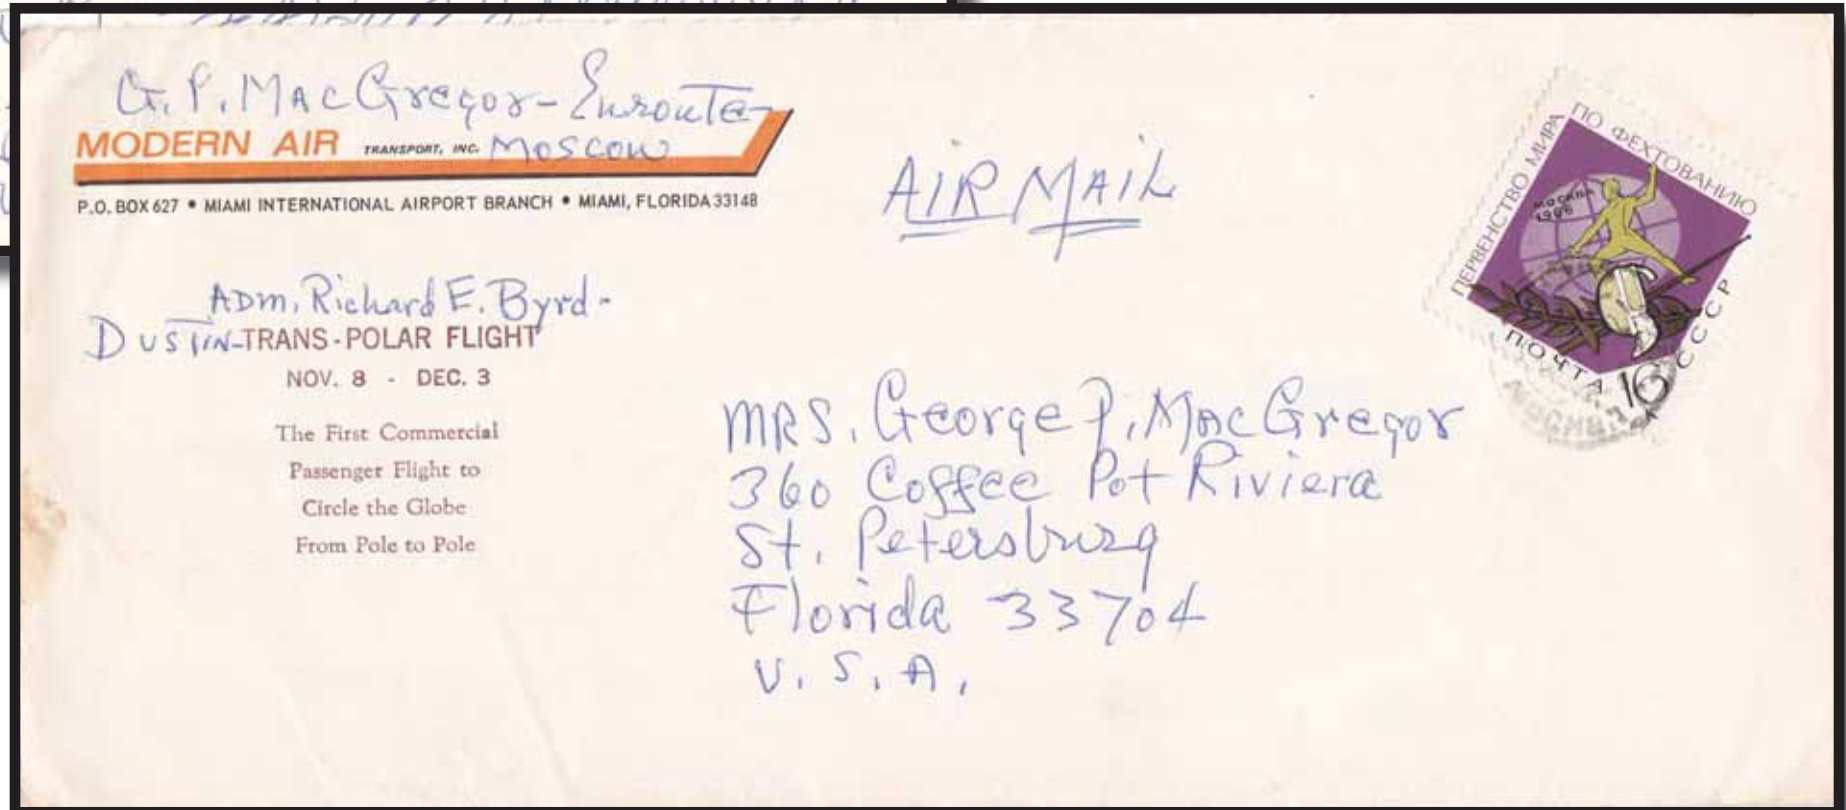 G. P. MacGregor - Enroute -
MODERN AIR TRANSPORT, INC. Moscow
P.O. BOX 627 • MIAMI INTERNATIONAL AIRPORT BRANCH • MIAMI, FLORIDA 33148
AIR MAIL
ПЕРВЕНСТВО МИРА ПО ФЕХТОВАНИЮ
МОСКВА
1966
ПОЧТА 10 СССР
МОСКВА
ADM. Richard E. Byrd-
DUSTIN-TRANS-POLAR FLIGHT
NOV. 8 - DEC. 3
The First Commercial
Passenger Flight to
Circle the Globe
From Pole to Pole
MRS. George P. MacGregor
360 Coffee Pot Riviera
St. Petersburg
Florida 33704
U. S. A.